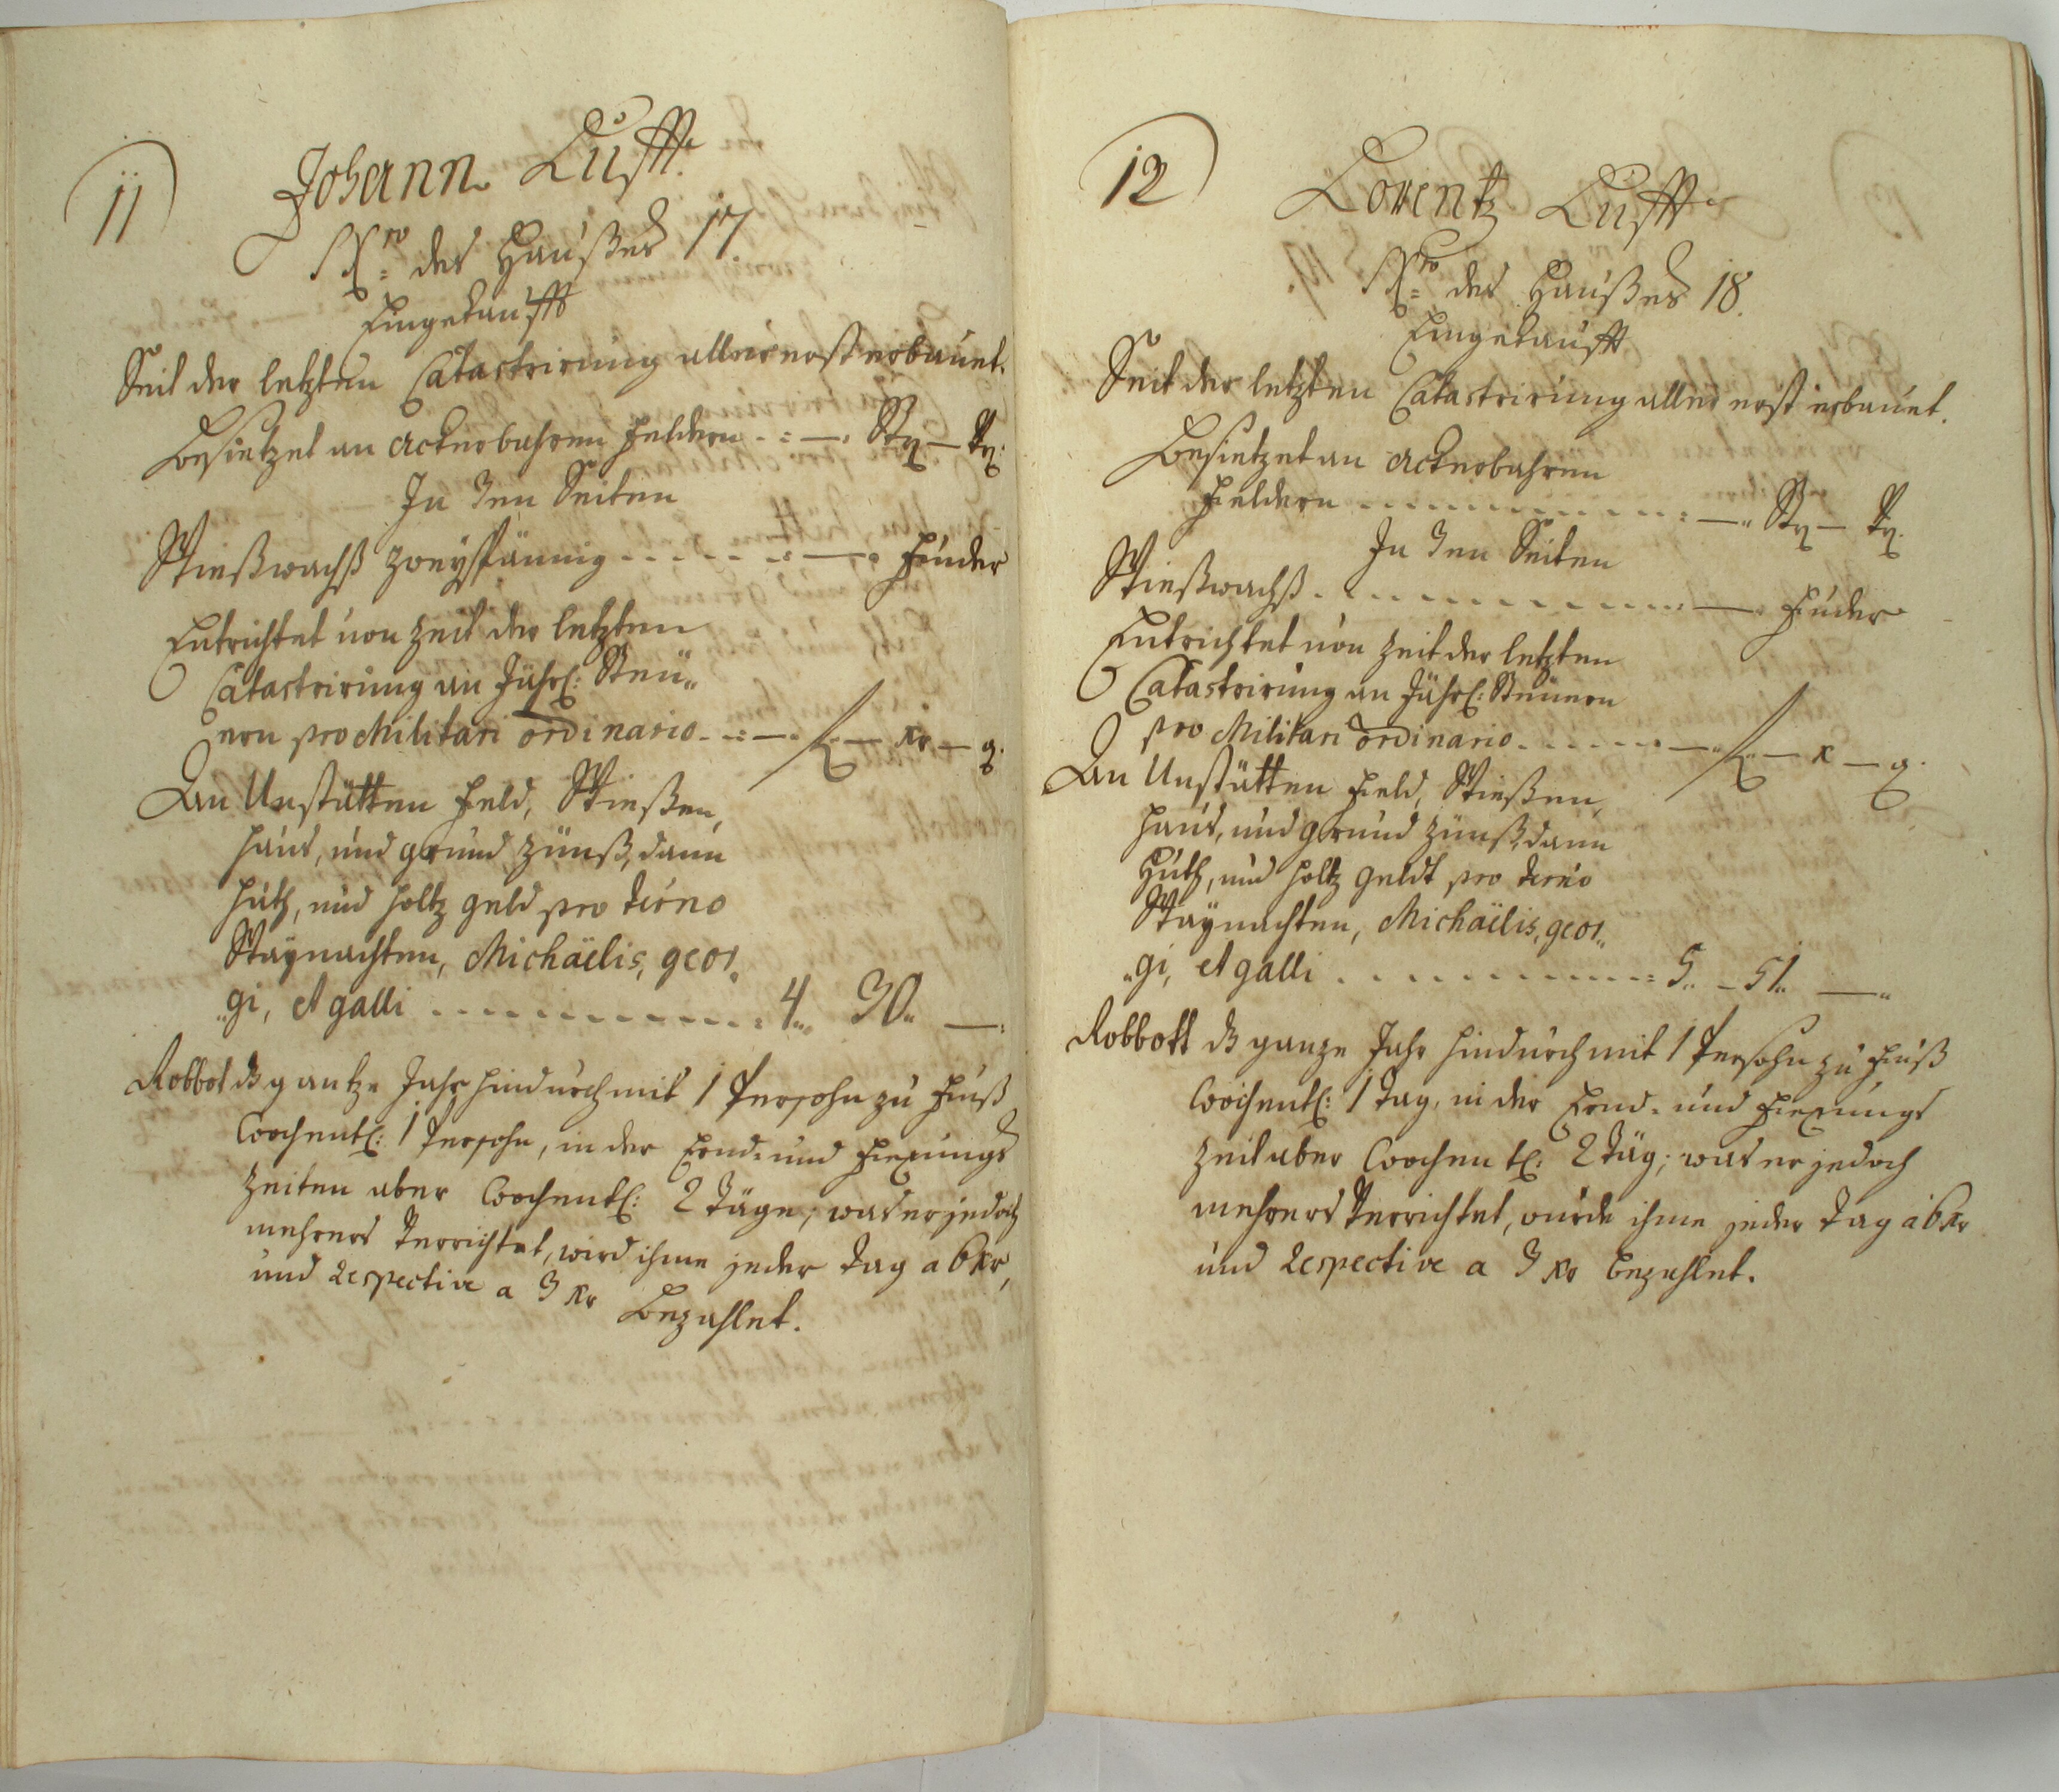 11
Johann Lufft.
Nro des Haußes 17
Eingekaufft
Seit der letzten Catastrirung aller erst erbauet.
Besietzet an Ackerbahren Feldern - Str — Vrl.
In 3en Seiten
Wießwachß zweyspännig — Fuder
Entrichtet von Zeit der letzten
Catastrirung an Jährl: Steu„
ern pro Militari ordinario - f — xr — ₰.
An Unstätten Feld, Wießen,
Hauß, und grund Zünß, dann
Huth, und Holtz geld pro term̄o
Waÿnachten, Michaëlis, geor„
„gi, et galli - 4„ 30„ —
Robbot dß gantze Jahr hindurch mit 1 Persohn zu Fuß
Wochentl: 1 Persohn, in der Ernd- und Fexungs
Zeiten aber Wochentl: 2 Täge, waß er jedoch
mehrers Verrichtet, wird ihme jeder Tag a 6 xr,
und Respective a 3 xr Bezahlet.
12
Lorentz Lufft
Nro des Haußes 18.
Eingekaufft
Seit der letzten Catastrirung aller erst erbauet.
Besietzet an Ackerbahren
Feldern - Str — Vrl.
In 3en Seiten
Wießwachß - — Fuder
Entrichtet von Zeit der letzten
Catastrirung an Jährl: Steuern
pro Militari ordinario - f — x — ₰.
An Unstätten Field, Wießen,
Hauß, und grund Zünß, dann
Huth, und Holtz geldt pro term̄o
Waÿnachten, Michaëlis, geor„
„gi, et galli - 5„ 51„ —
Robbott dß ganze Jahr hindurch mit 1 Persohn zu Fuß
Wochentl: 1 Tag, in der Ernd- und Fiexungs
Zeit aber Wochentl: 2 Täg; waß er jedoch
mehrers Verrichtet, wurde ihme jeder Tag à 6 xr
und Respective a 3 xr bezahlet.